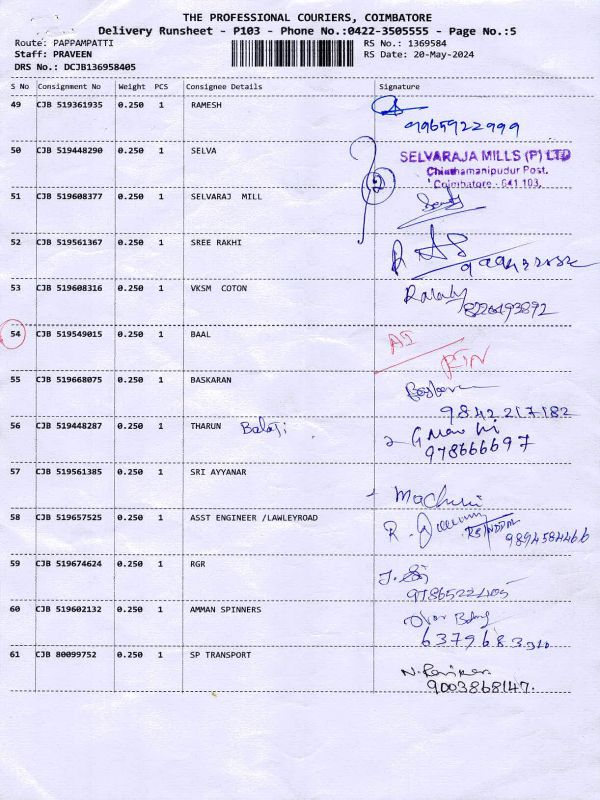 THE PROFESSIONAL COURIERS, COIMBATORE
Delivery Runsheet - P103 - Phone No.:0422-3505555 - Page No.:5
Route: PAPPAMPATTI RS No.: 1369584
Staff: PRAVEEN RS Date: 20-May-2024
DRS No.: DCJB136958405
S No Consignment No Weight PCS Consignee Details Signature
49 CJB 519361935 0.250 1 RAMESH
9965922999
50 CJB 519448290 0.250 1 SELVA
SELVARAJA MILLS (P) LTD
Chinthamanipudur Post,
Coimbatore - 641 103.
51 CJB 519608377 0.250 1 SELVARAJ MILL
52 CJB 519561367 0.250 1 SREE RAKHI
53 CJB 519608316 0.250 1 VKSM COTON
8220493892
54 CJB 519549015 0.250 1 BAAL
55 CJB 519668075 0.250 1 BASKARAN
9842217182
56 CJB 519448287 0.250 1 THARUN Balaji
978666697
57 CJB 519561385 0.250 1 SRI AYYANAR
58 CJB 519657525 0.250 1 ASST ENGINEER /LAWLEYROAD
9894584466
59 CJB 519674624 0.250 1 RGR
60 CJB 519602132 0.250 1 AMMAN SPINNERS
61 CJB 80099752 0.250 1 SP TRANSPORT
9003868147.